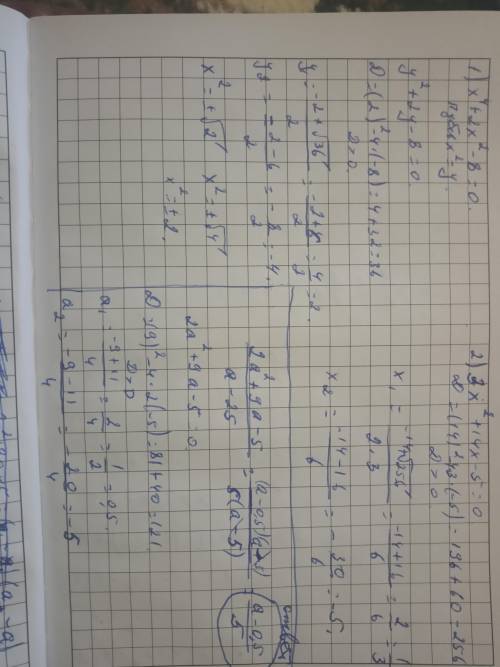 1) x⁴+2x²-8=0.
Пусть x²=y.
y²+2y-8=0.
D=(2)²-4·(-8)=4+32=36
D>0.
y = (-2+√36)/2 = (-2+6)/2 = 4/2 = 2.
y₂ = (-2-6)/2 = -8/2 = -4.
x²=±√2 x²=±√4
x²=±2.
2) 3x²+14x-5=0
D=(14)²-4·3·(-5)=196+60=256
D>0
x₁ = (-14+√256)/(2·3) = (-14+16)/6 = 2/6 = 1/3
x₂ = (-14-16)/6 = -30/6 = -5.
(2a²+9a-5)/(a-25) = (a-0,5)(a+5)/5(a-5) = (a-0,5)/5
ответ
2a²+9a-5=0
D=(9)²-4·2·(-5)=81+40=121.
D>0
a₁ = (-9+11)/4 = 2/4 = 1/2 = 0,5.
a₂ = (-9-11)/4 = -20/4 = -5